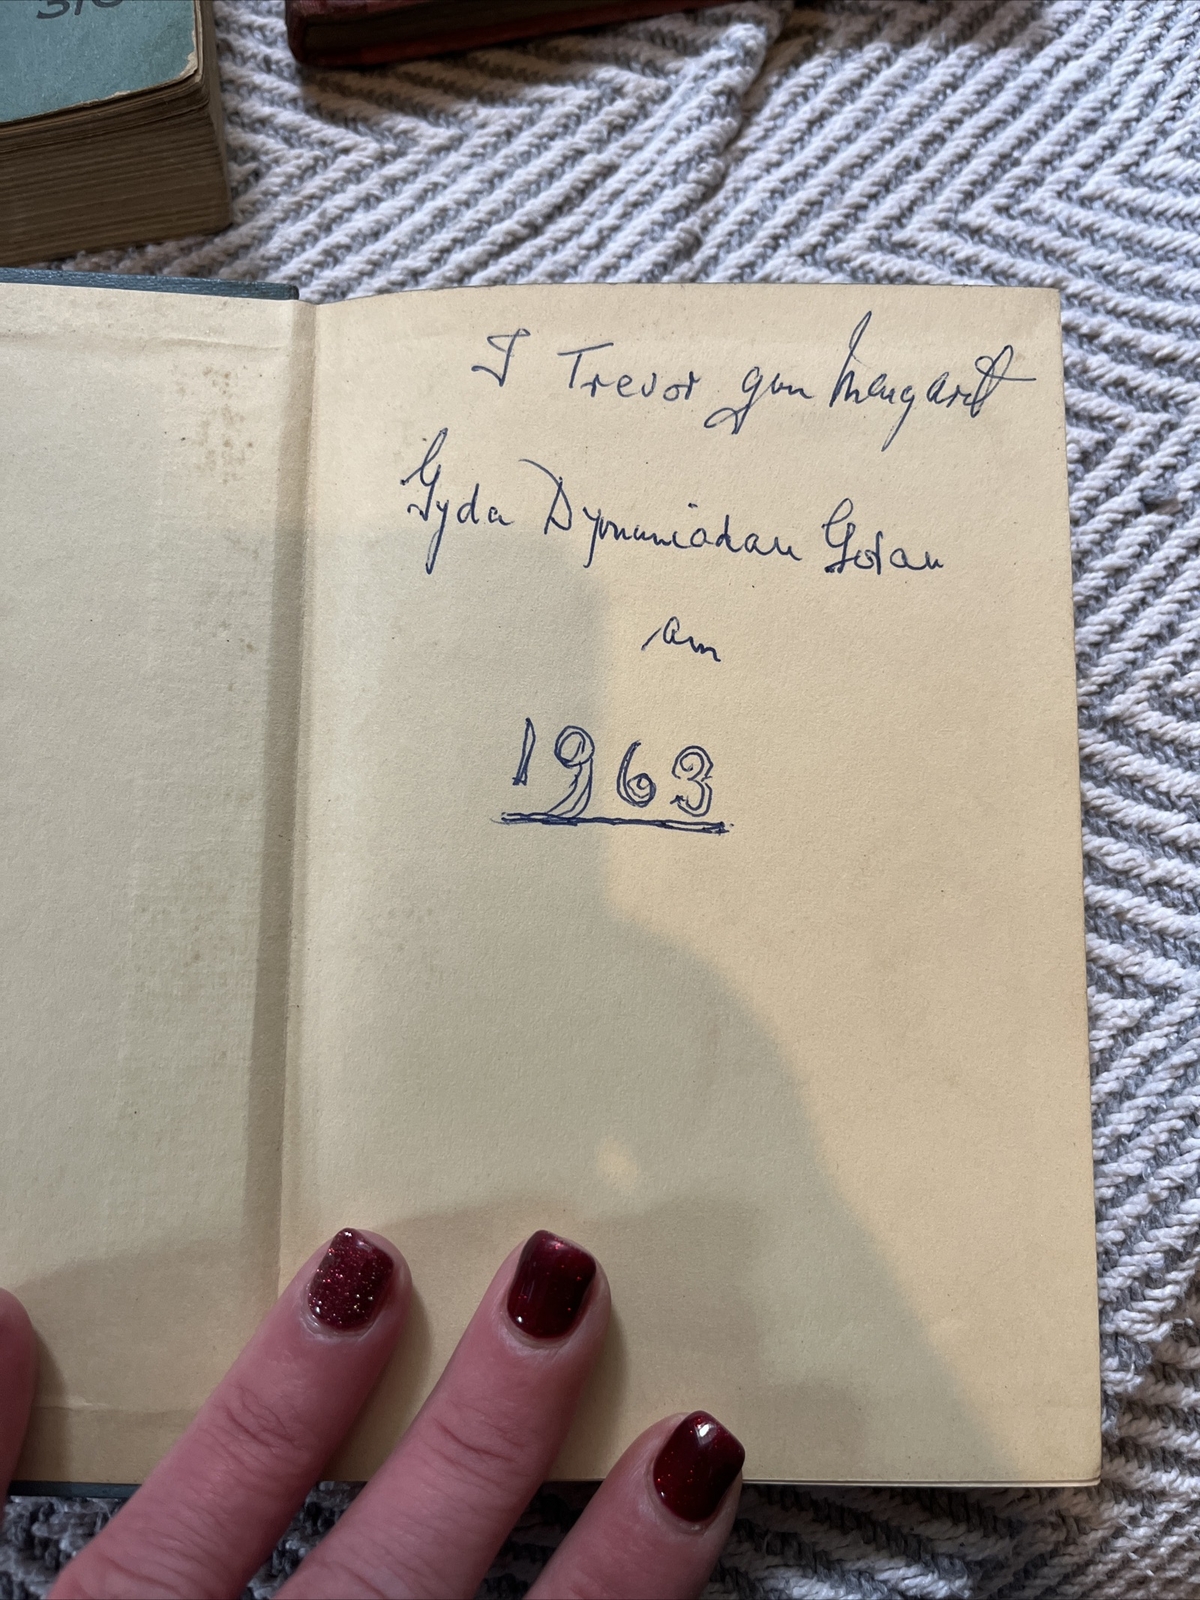 I Trevor gan Margaret
Gyda Dymuniadau Gorau
am
1963